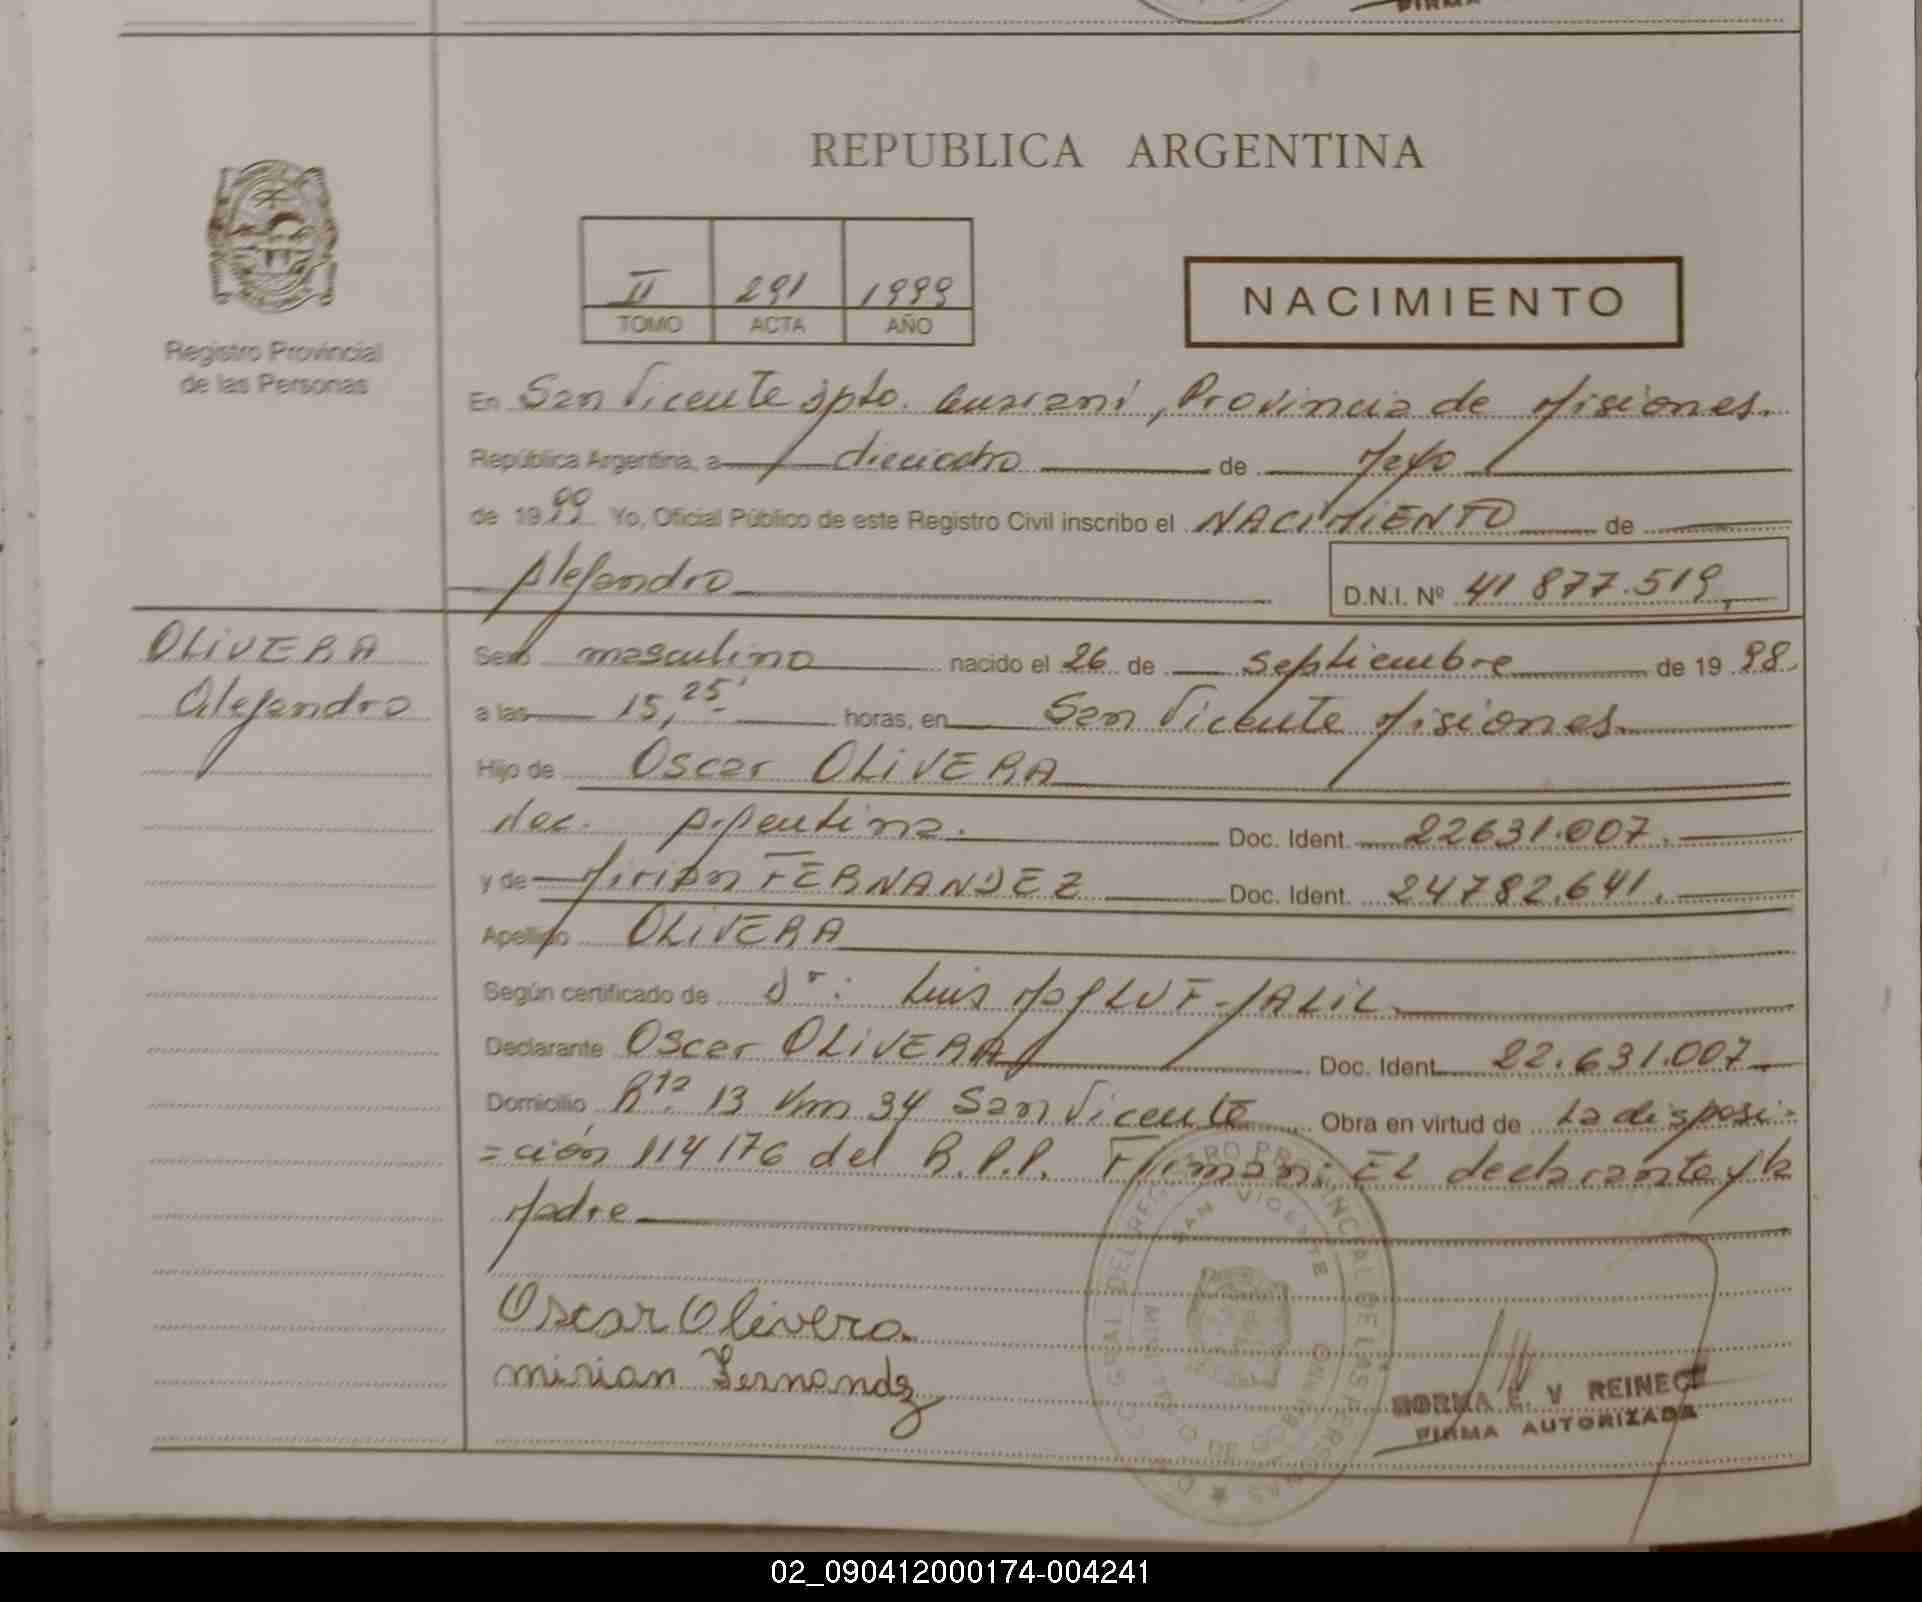 FIRMA
REPUBLICA ARGENTINA
II 291 1999
TOMO ACTA AÑO
NACIMIENTO
Registro Provincial
de las Personas
En San Vicente dpto. Guarani, Provincia de Misiones.
República Argentina, a dieciocho de Mayo
de 1999 Yo, Oficial Público de este Registro Civil inscribo el NACIMIENTO de
Alejandro D.N.I. Nº 41 877.519
OLIVERA
Alejandro
Sexo masculino nacido el 26 de septiembre de 19 98
a las 15,25' horas, en San Vicente Misiones
Hijo de Oscar OLIVERA
Nac. Argentina. Doc. Ident. 22631.007.
y de Mirian FERNANDEZ Doc. Ident. 24782.641.
Apellido OLIVERA
Según certificado de Dr: Luis JALIL
Declarante Oscar OLIVERA Doc. Ident. 22.631.007
Domicilio Rta. 13 Km 34 San Vicente Obra en virtud de La disposi=
=ción 114176 del R.P.P. Firman: EL declarante y la
Madre
Oscar Olivera
mirian Fernandz
NORMA E. V REINECE
FIRMA AUTORIZADA
SAN VICENTE
02_090412000174-004241